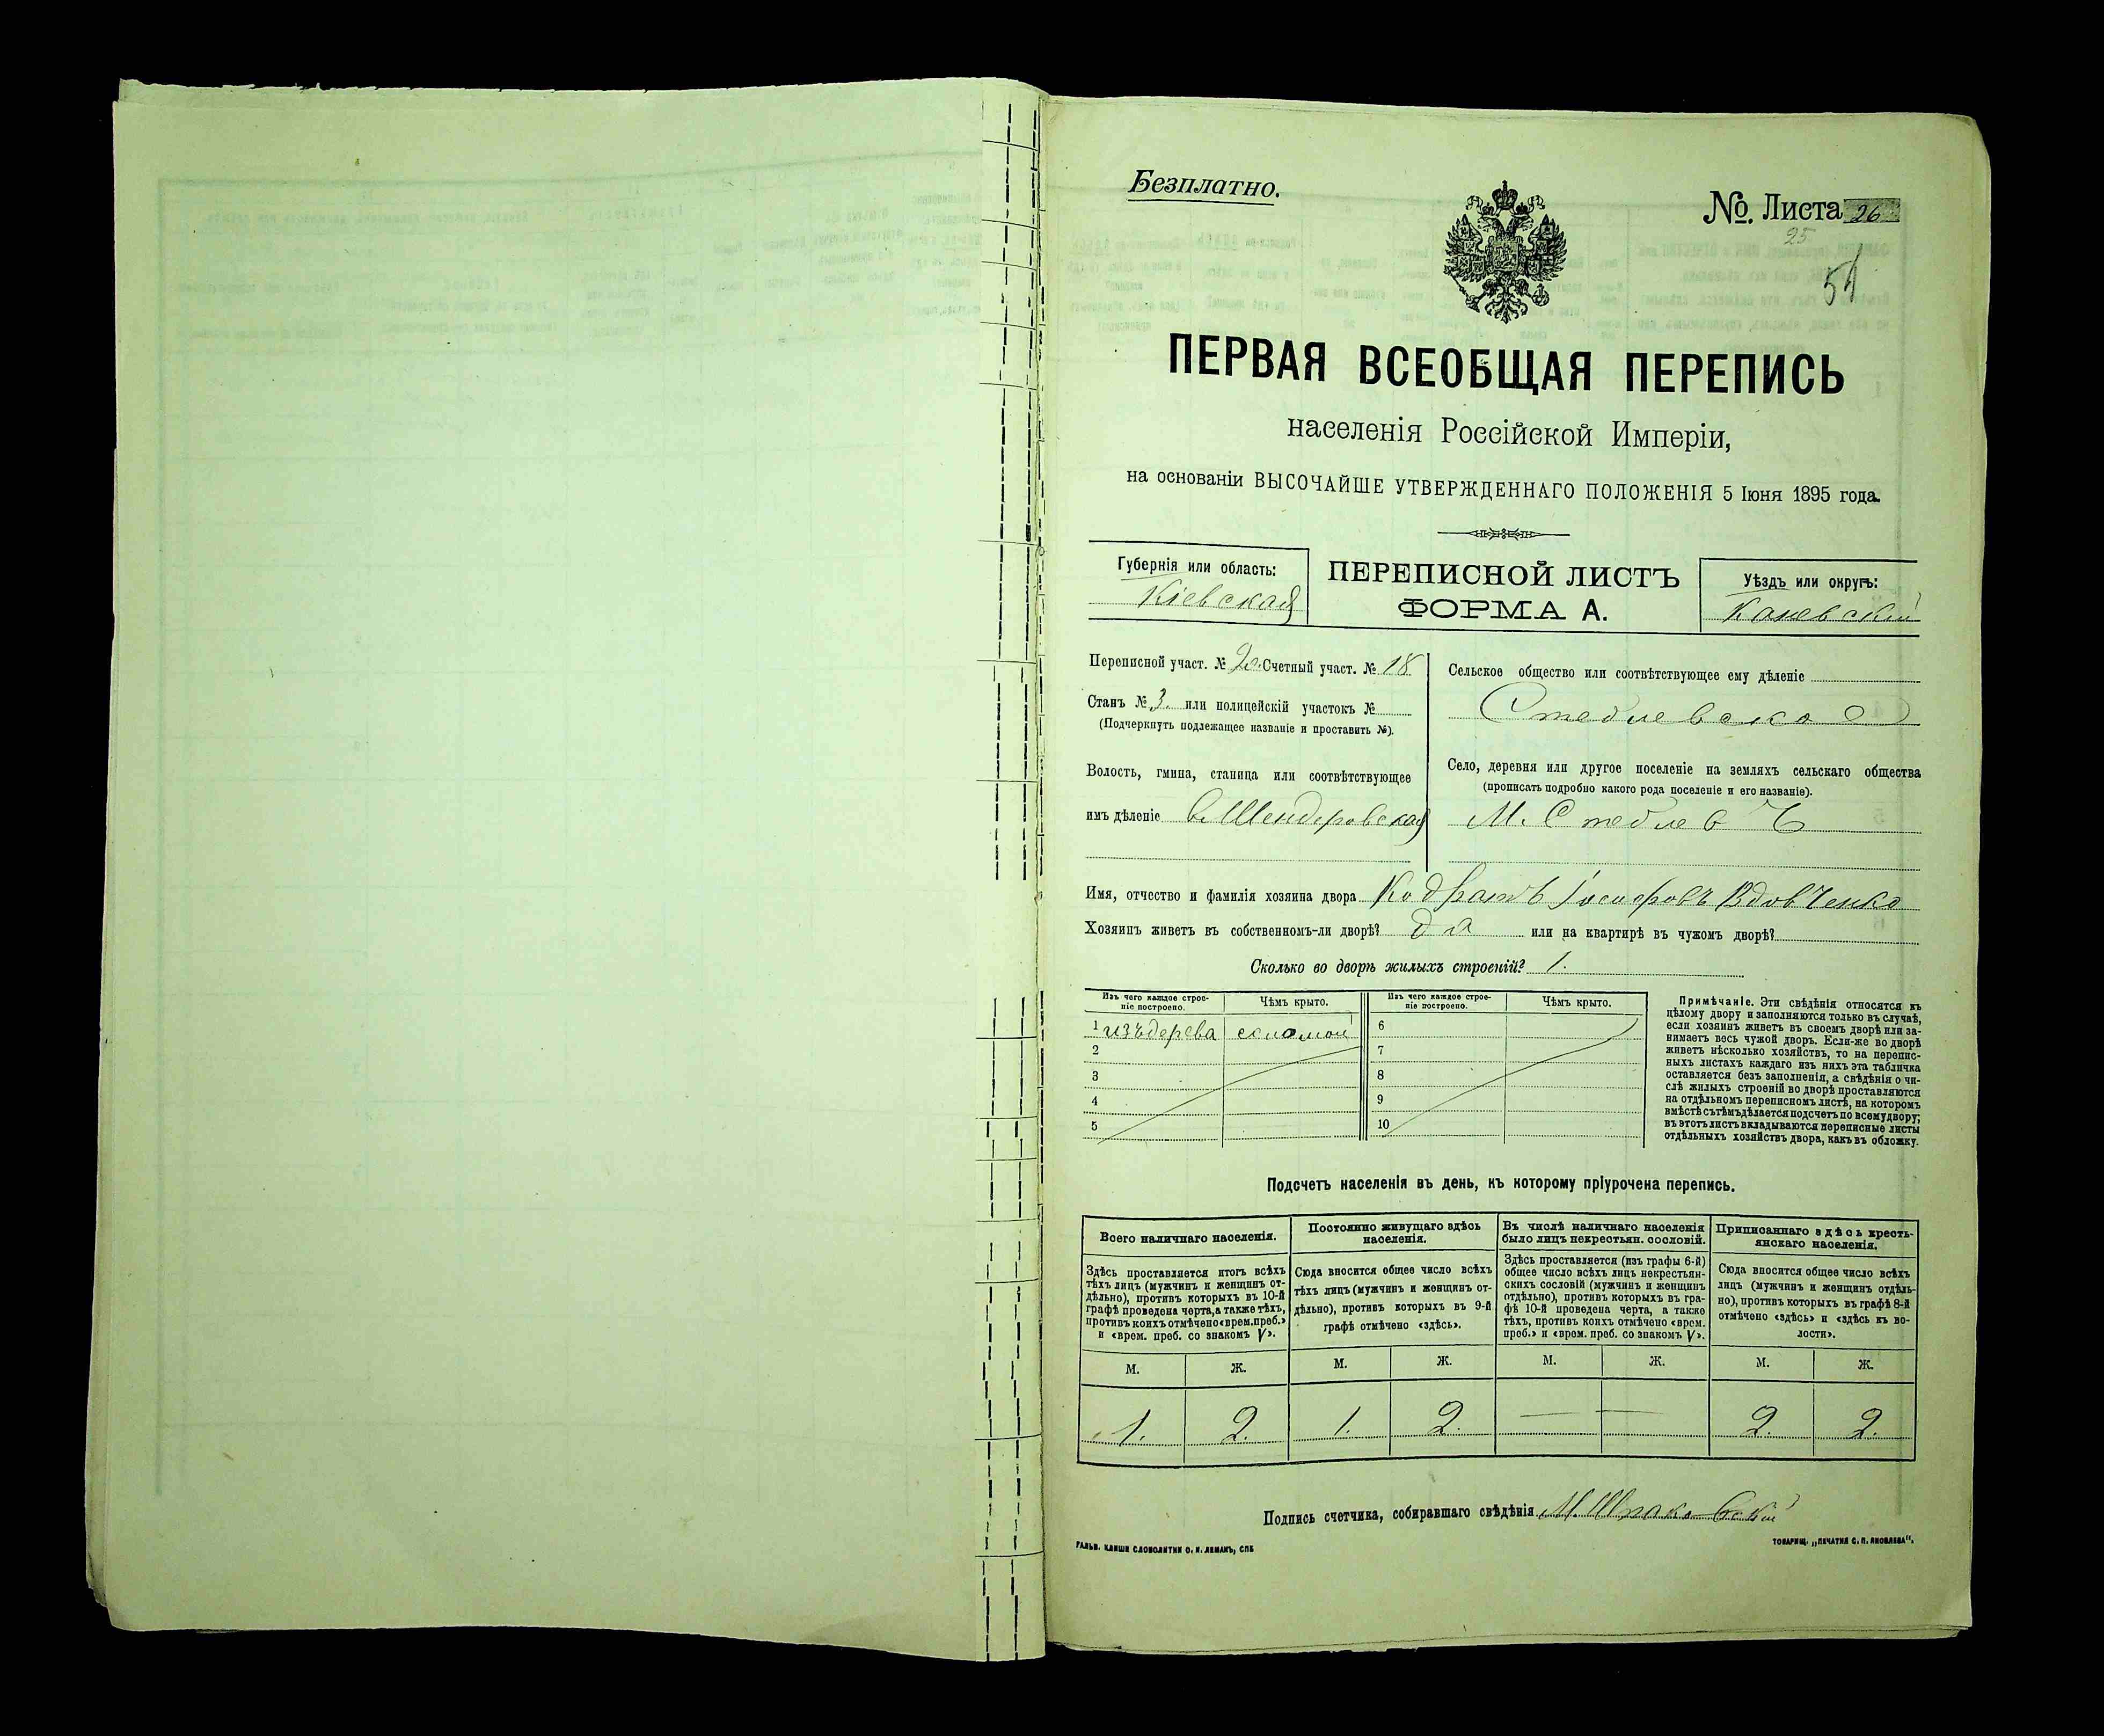 Безплатно.
№. Листа 26
25
54
ПЕРВАЯ ВСЕОБЩАЯ ПЕРЕПИСЬ
населенія Россійской Имперіи,
на основаніи ВЫСОЧАЙШЕ УТВЕРЖДЕННАГО ПОЛОЖЕНІЯ 5 Іюня 1895 года.
Губернія или область:
Кіевская
ПЕРЕПИСНОЙ ЛИСТЪ
ФОРМА А.
Уѣздъ или округъ:
Каневскій
Переписной участ. № 2 Счетный участ. № 18
Станъ № 3. или полицейскій участокъ №
(Подчеркнуть подлежащее названіе и проставить №).
Волость, гмина, станица или соотвѣтствующее
имъ дѣленіе в. Шендеровская
Сельское общество или соотвѣтствующее ему дѣленіе
Стеблевское
Село, деревня или другое поселеніе на земляхъ сельскаго общества
(прописать подробно какого рода поселеніе и его названіе).
М. Стеблевъ
Имя, отчество и фамилія хозяина двора Кодратъ Іосифовъ Вдовченко
Хозяинъ живетъ въ собственномъ-ли дворѣ? да или на квартирѣ въ чужомъ дворѣ?
Сколько во дворѣ жилыхъ строеній? 1.
Изъ чего каждое строе-
ніе построено.
Чѣмъ крыто.
Изъ чего каждое строе-
ніе построено.
Чѣмъ крыто.
1 изъ дерева соломой 6
2 7
3 8
4 9
5 10
Примѣчаніе. Эти свѣдѣнія относятся къ
цѣлому двору и заполняются только въ случаѣ,
если хозяинъ живетъ въ своемъ дворѣ или за-
нимаетъ весь чужой дворъ. Если-же во дворѣ
живетъ нѣсколько хозяйствъ, то на перепис-
ныхъ листахъ каждаго изъ нихъ эта табличка
оставляется безъ заполненія, а свѣдѣнія о чи-
слѣ жилыхъ строеній во дворѣ проставляются
на отдѣльномъ переписномъ листѣ, на которомъ
вмѣстѣ съ тѣмъ дѣлается подсчетъ по всему двору;
въ этотъ листъ вкладываются переписные листы
отдѣльныхъ хозяйствъ двора, какъ въ обложку.
Подсчетъ населенія въ день, къ которому пріурочена перепись.
Всего наличнаго населенія.
Здѣсь проставляется итогъ всѣхъ
тѣхъ лицъ (мужчинъ и женщинъ от-
дѣльно), противъ которыхъ въ 10-й
графѣ проведена черта, а также тѣхъ,
противъ коихъ отмѣчено «врем. преб.»
и «врем. преб. со знакомъ V».
Постоянно живущаго здѣсь
населенія.
Сюда вносится общее число всѣхъ
тѣхъ лицъ (мужчинъ и женщинъ от-
дѣльно), противъ которыхъ въ 9-й
графѣ отмѣчено «здѣсь».
Въ числѣ наличнаго населенія
было лицъ некрестьян. сословій.
Здѣсь проставляется (изъ графы 6-й)
общее число всѣхъ лицъ некрестьян-
скихъ сословій (мужчинъ и женщинъ
отдѣльно), противъ которыхъ въ гра-
фѣ 10-й проведена черта, а также
тѣхъ, противъ коихъ отмѣчено «врем.
преб.» и «врем. преб. со знакомъ V».
Приписаннаго здѣсь кресть-
янскаго населенія.
Сюда вносится общее число всѣхъ
лицъ (мужчинъ и женщинъ отдѣль-
но), противъ которыхъ въ графѣ 8-й
отмѣчено «здѣсь» и «здѣсь къ во-
лости».
М. Ж. М. Ж. М. Ж. М. Ж.
1. 2. 1. 2. — — 2. 2.
Подпись счетчика, собиравшаго свѣдѣнія
ГАЛЬВ. КЛИШЕ СЛОВОЛИТНИ О. И. ЛЕМАНЪ, СПБ
ТОВАРИЩ. „ПЕЧАТНЯ С. П. ЯКОВЛЕВА".